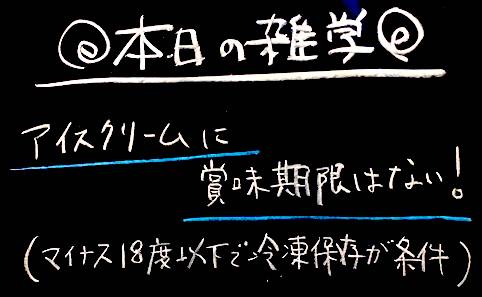 @本日の雑学@
アイスクリームに
賞味期限はない!
(マイナス18度以下で冷凍保存が条件)